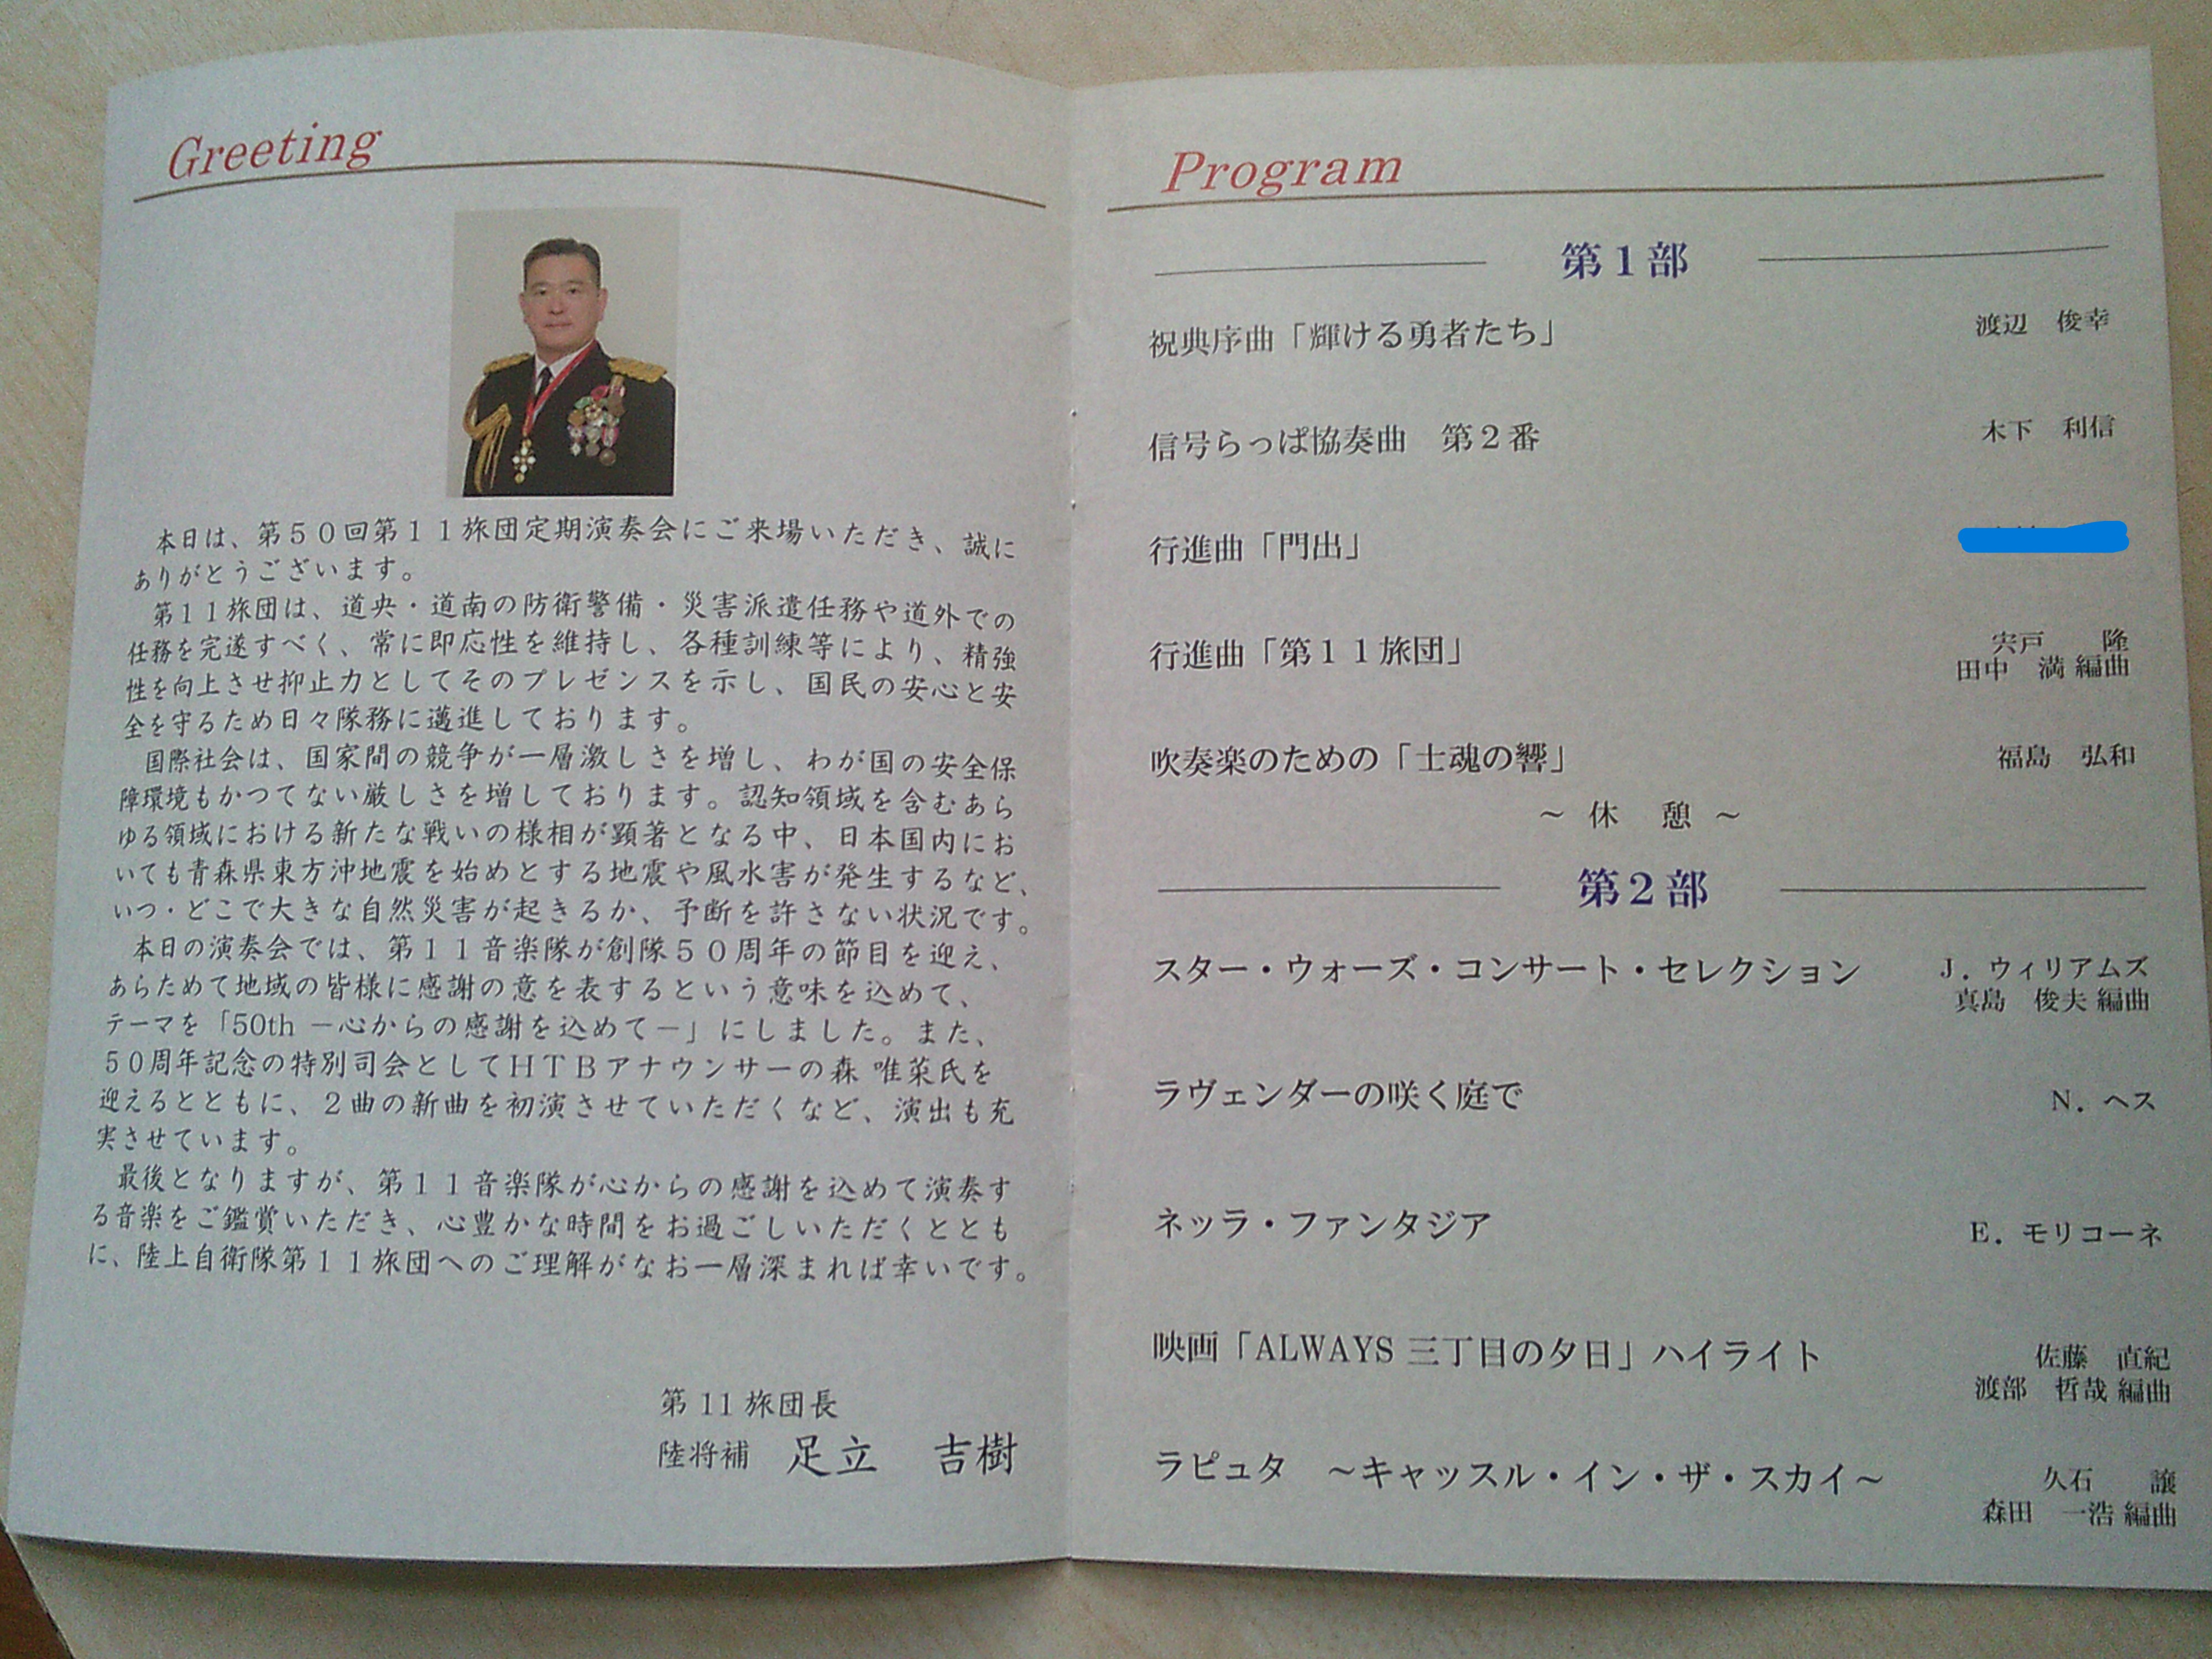 Greeting
本日は、第５０回第１１旅団定期演奏会にご来場いただき、誠に
ありがとうございます。
第１１旅団は、道央・道南の防衛警備・災害派遣任務や道外での
任務を完遂すべく、常に即応性を維持し、各種訓練等により、精強
性を向上させ抑止力としてそのプレゼンスを示し、国民の安心と安
全を守るため日々隊務に邁進しております。
国際社会は、国家間の競争が一層激しさを増し、わが国の安全保
障環境もかつてない厳しさを増しております。認知領域を含むあら
ゆる領域における新たな戦いの様相が顕著となる中、日本国内にお
いても青森県東方沖地震を始めとする地震や風水害が発生するなど、
いつ・どこで大きな自然災害が起きるか、予断を許さない状況です。
本日の演奏会では、第１１音楽隊が創隊５０周年の節目を迎え、
あらためて地域の皆様に感謝の意を表するという意味を込めて、
テーマを「50th －心からの感謝を込めて－」にしました。また、
５０周年記念の特別司会としてＨＴＢアナウンサーの森 唯菜氏を
迎えるとともに、２曲の新曲を初演させていただくなど、演出も充
実させています。
最後となりますが、第１１音楽隊が心からの感謝を込めて演奏す
る音楽をご鑑賞いただき、心豊かな時間をお過ごしいただくととも
に、陸上自衛隊第１１旅団へのご理解がなお一層深まれば幸いです。
第 11 旅団長
陸将補 足立 吉樹
Program
第１部
祝典序曲「輝ける勇者たち」 渡辺 俊幸
信号らっぱ協奏曲 第２番 木下 利信
行進曲「門出」
行進曲「第１１旅団」 宍戸 隆
田中 満 編曲
吹奏楽のための「士魂の響」 福島 弘和
～ 休 憩 ～
第２部
スター・ウォーズ・コンサート・セレクション J．ウィリアムズ
真島 俊夫 編曲
ラヴェンダーの咲く庭で N．ヘス
ネッラ・ファンタジア E．モリコーネ
映画「ALWAYS 三丁目の夕日」ハイライト 佐藤 直紀
渡部 哲哉 編曲
ラピュタ ～キャッスル・イン・ザ・スカイ～ 久石 譲
森田 一浩 編曲